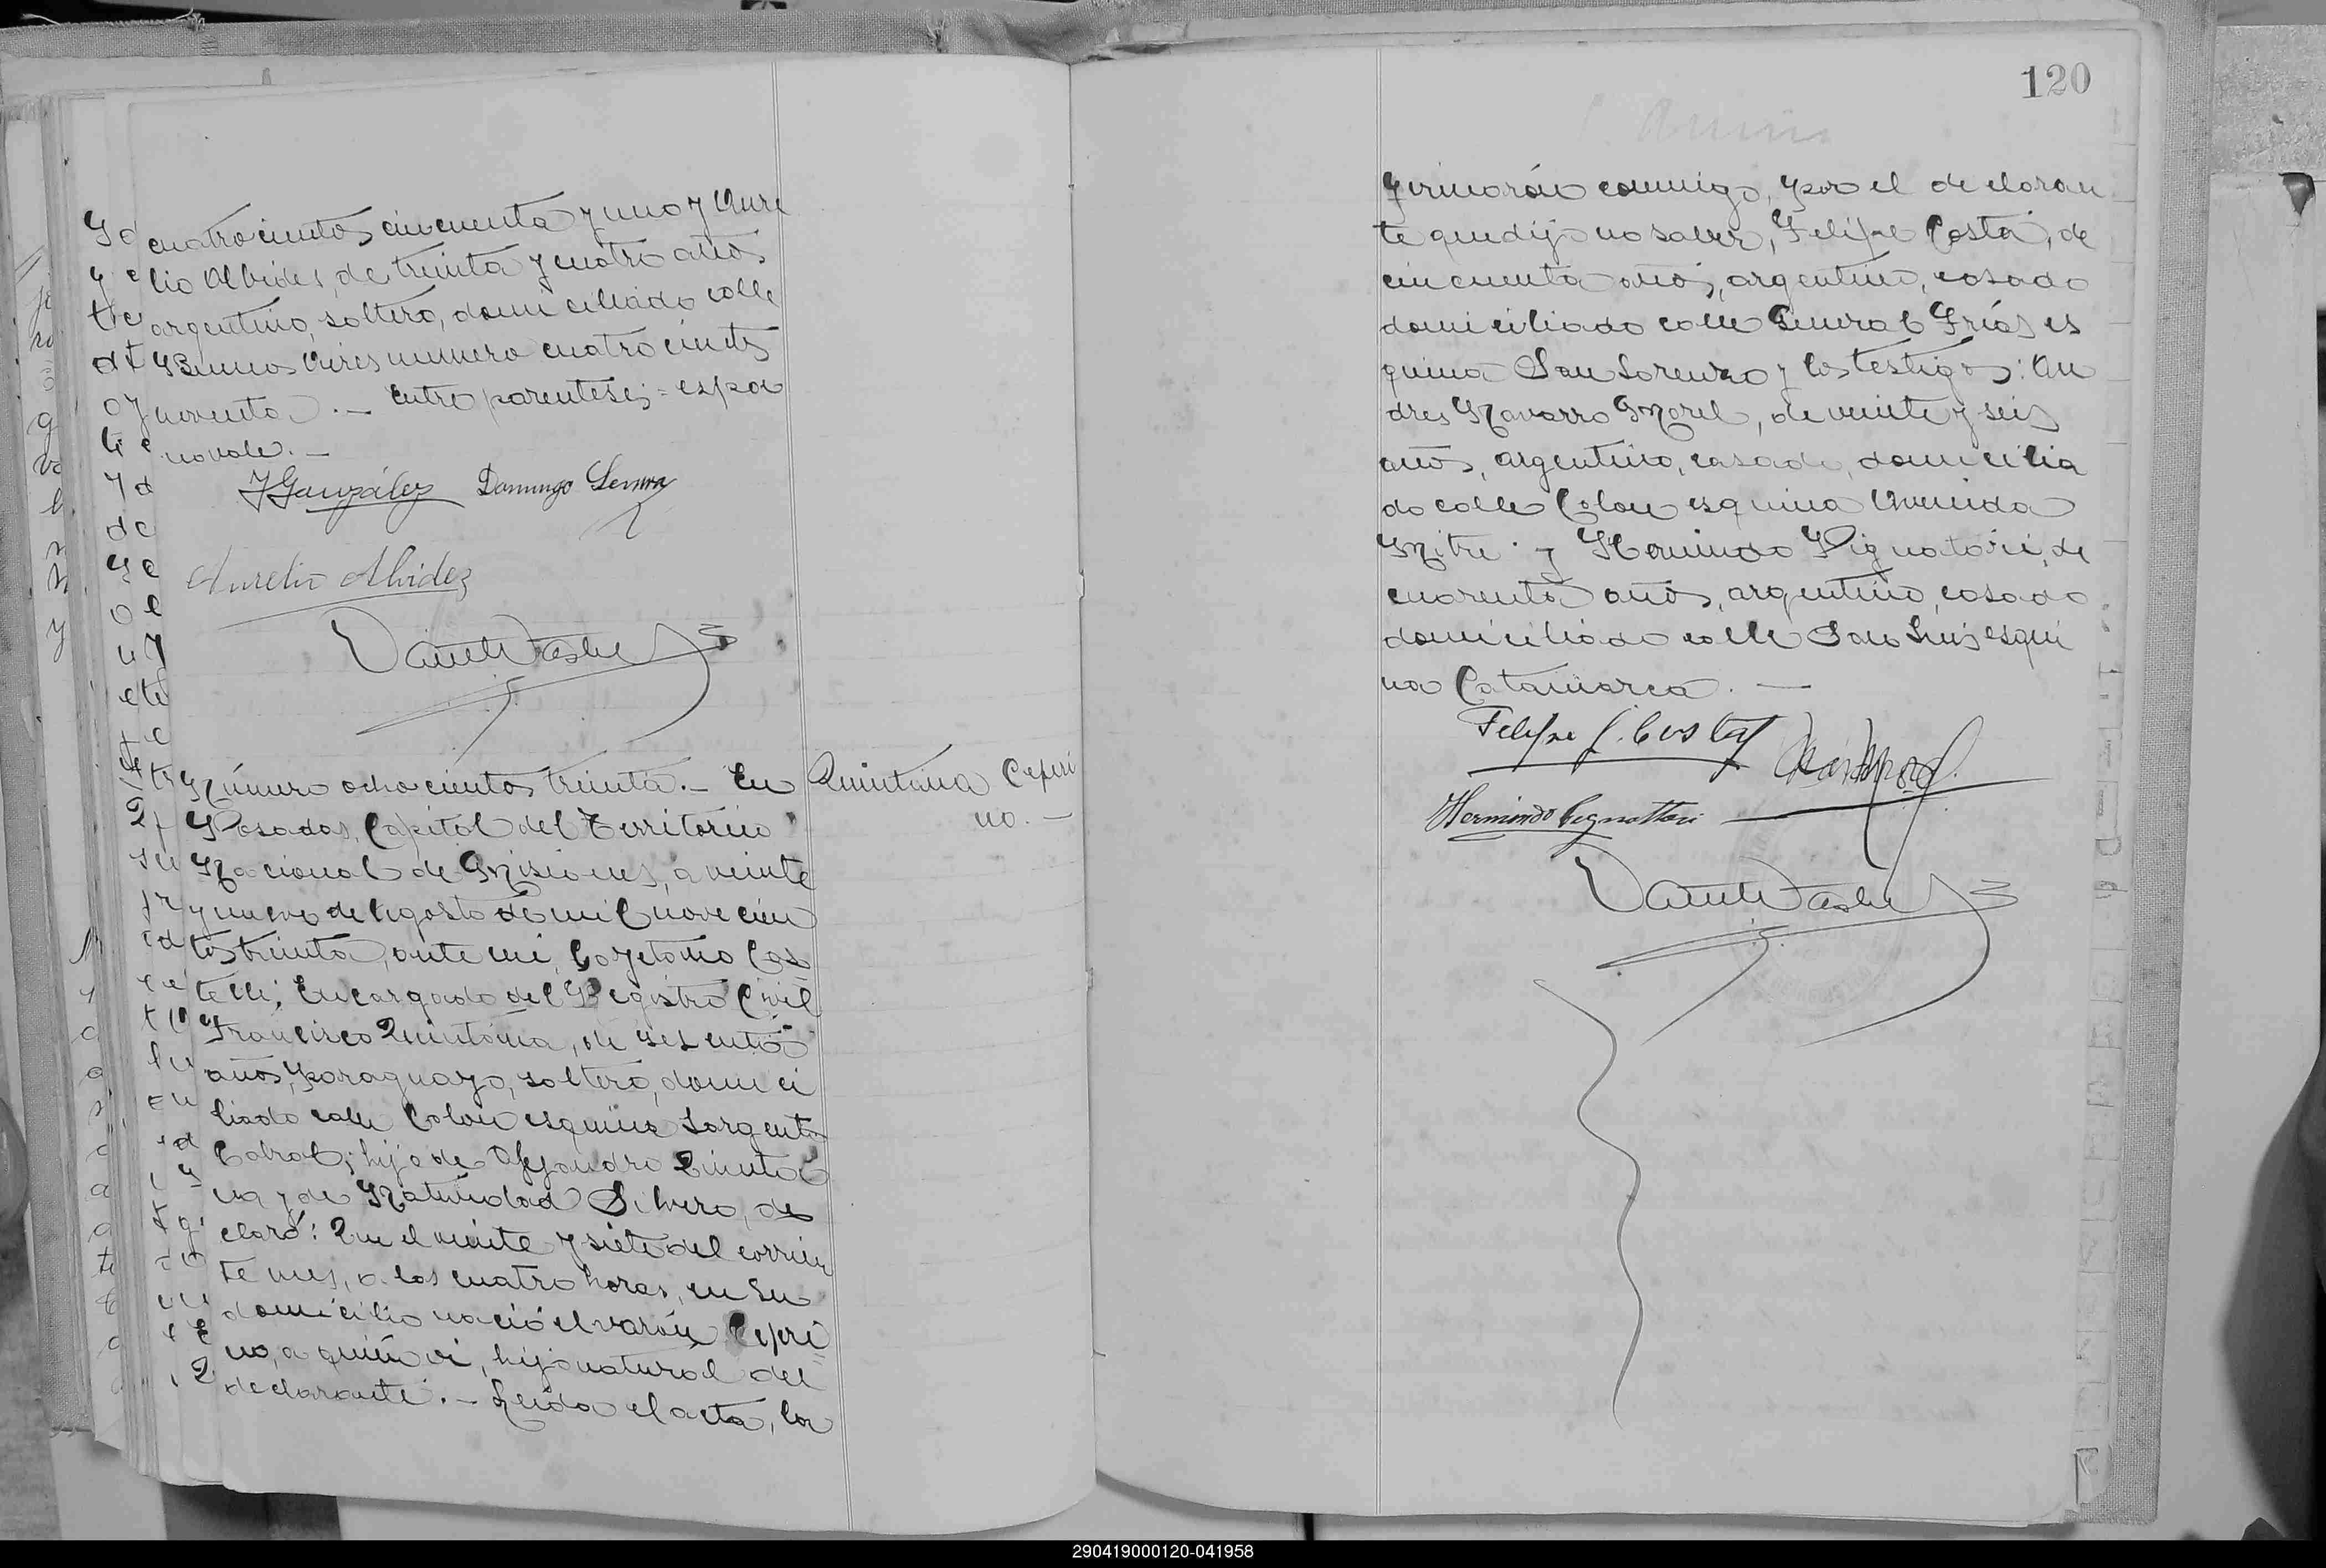 cuatrocientos cincuenta y uno y Aure
lio Alvides, de treinta y cuatro años
argentino, soltero, domiciliado calle
Buenos Aires numero cuatrocientos
noventa. — Entre parentesis = espa
no vale. —
J Gonzáles Domingo Serra
Aurelio Alvidez
Número ochocientos treinta. — En
Posadas, Capital del Territorio
Nacional de Misiones, a veinte
y nueve de Agosto de mil novecien
tos treinta, ante mi, Cayetano Cas
telli; Encargado del Registro Civil
Francisco Quintana, de sesenta
años, paraguayo, soltero, domici
liado calle Colon esquina Sargento
Cabral; hijo de Alejandro Quinta
na y de Natividad Silvero, de
claró: Que el veinte y siete del corrien
te mes, a las cuatro horas, en su
domicilio nació el varón Ceferi
no, a quien vi, hijo natural del
declarante. — Leida el acta, la
Quintana Ceferi
no. —
120
firmarón conmigo, y por el declaran
te que dijo no saber, Felipe Costa, de
cincuenta años, argentino, casado
domiciliado calle General Frías es
quina San Lorenzo y los testigos: An
dres Navarro Morel, de veinte y seis
años, argentino, casado, domicilia
do calle Colon esquina Avenida
Mitre y Hermindo Pignatari, de
cuarenta años, argentino, casado
domiciliado calle San Luis esqui
na Catamarca. —
Felipe J. Costa
Hermindo Pignattari
290419000120-041958